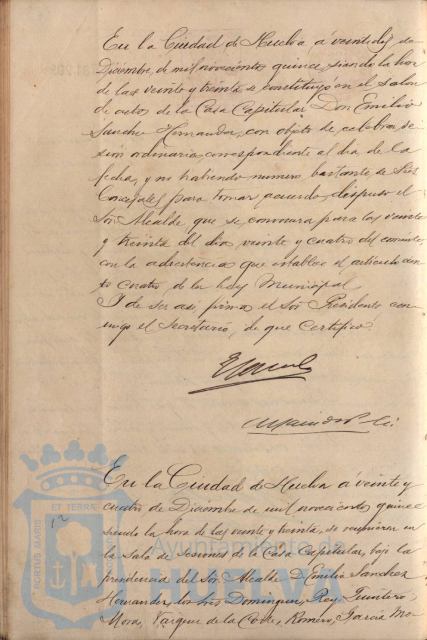 En la Ciudad de Huelva á veintidos de
Diciembre, de mil novecientos quince, siendo la hora
de las veinte y treinta se constituyó en el salon
de actos de la Casa Capitular Don Emilio
Sanchez Hernandez, con objeto de celebrar se-
sion ordinaria, correspondiente al dia de la
fecha, y no habiendo numero bastante de Sres
Concejales para tomar acuerdo, dispuso el
Sor. Alcalde que se convocara para las veinte
y treinta del dia veinte y cuatro del corriente,
con la advertencia que establece el articulo cien-
to cuatro de la Ley Municipal
Y de ser asi firma el Sor. Presidente con-
migo el Secretario, de que certifico.
En la Ciudad de Huelva á veinte y
cuatro de Diciembre de mil novecientos quince
siendo la hora de las veinte y treinta, se reunieron en
la Sala de Sesiones de la Casa Capitular, bajo la
presidencia del Sor. Alcalde D. Emilio Sanchez
Hernandez, los Sres Dominguez, Rey, Quintero,
Mora, Vazquez de la Corte, Romero, Garcia Mo-
PORTUS MARIS ET TERRAE
Ayuntamiento de
HUELVA